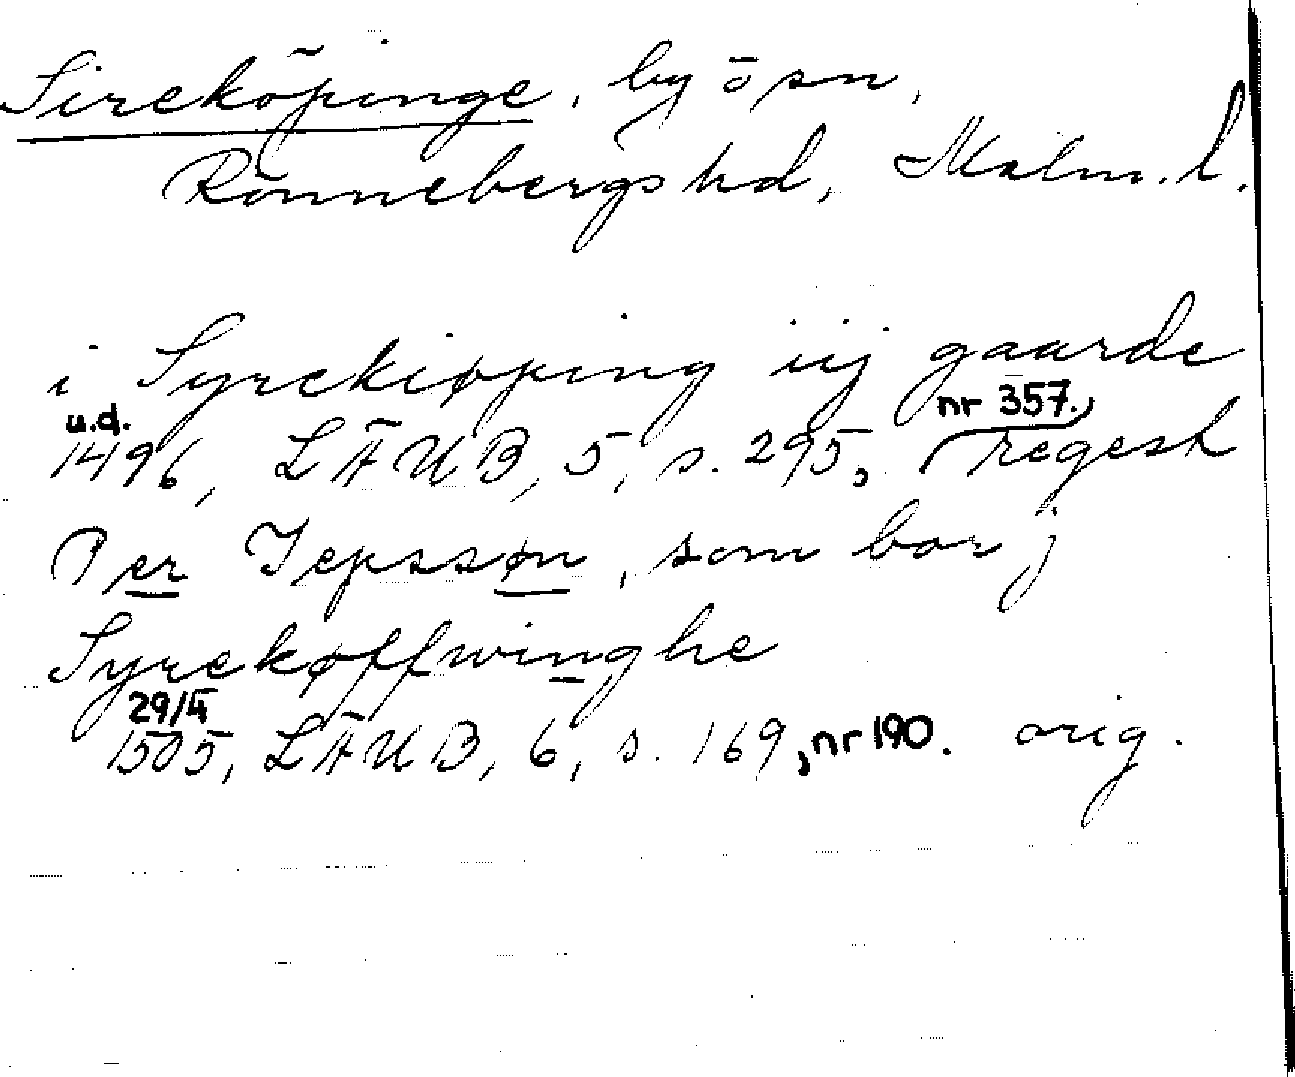 Sireköpinge, by o sn,
Rönnebergs hd, Malm. l.
i Syrekiøping iij gaarde
u.d. nr 357.,
1496, LÄUB, 5, s. 295, regest
Per Jepssøn, som bor j
Syrekøffwinghe
29/4
1505, LÄUB, 6, s. 169, nr 190. orig.